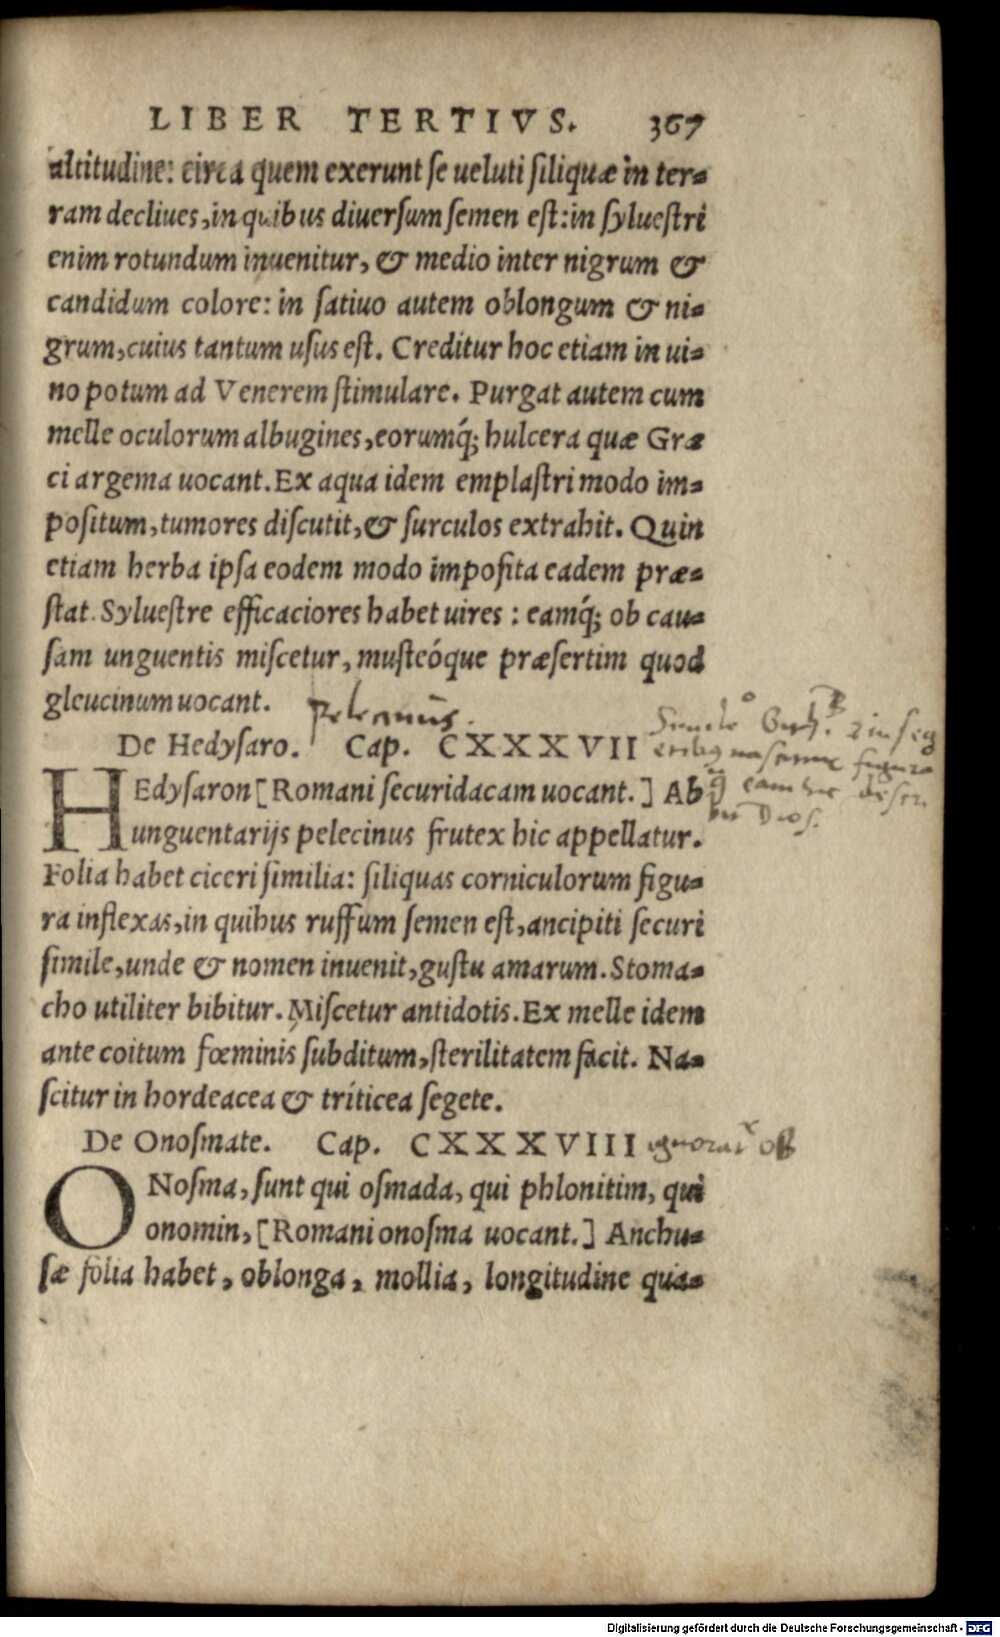 LIBER TERTIVS. 367
altitudine: circa quem exerunt se ueluti siliquæ in ter-
ram decliues, in quibus diuersum semen est: in syluestri
enim rotundum inuenitur, & medio inter nigrum &
candidum colore: in satiuo autem oblongum & ni-
grum, cuius tantum usus est. Creditur hoc etiam in ui-
no potum ad Venerem stimulare. Purgat autem cum
melle oculorum albugines, eorumq́; hulcera quæ Græ
ci argema uocant. Ex aqua idem emplastri modo im-
positum, tumores discutit, & surculos extrahit. Quin
etiam herba ipsa eodem modo imposita eadem præ-
stat. Syluestre efficaciores habet uires : eamq́; ob cau-
sam unguentis miscetur, musteóque præsertim quod
gleucinum uocant.
De Hedysaro. Cap. CXXXVII
HEdysaron [Romani securidacam uocant.] Ab
unguentarijs pelecinus frutex hic appellatur.
Folia habet ciceri similia: siliquas corniculorum figu-
ra inflexas, in quibus ruffum semen est, ancipiti securi
simile, unde & nomen inuenit, gustu amarum. Stoma-
cho utiliter bibitur. Miscetur antidotis. Ex melle idem
ante coitum fœminis subditum, sterilitatem facit. Na-
scitur in hordeacea & triticea segete.
De Onosmate. Cap. CXXXVIII
ONosma, sunt qui osmada, qui phlonitim, qui
onomin, [Romani onosma uocant.] Anchu-
sæ folia habet, oblonga, mollia, longitudine qua-
Digitalisierung gefördert durch die Deutsche Forschungsgemeinschaft - DFG